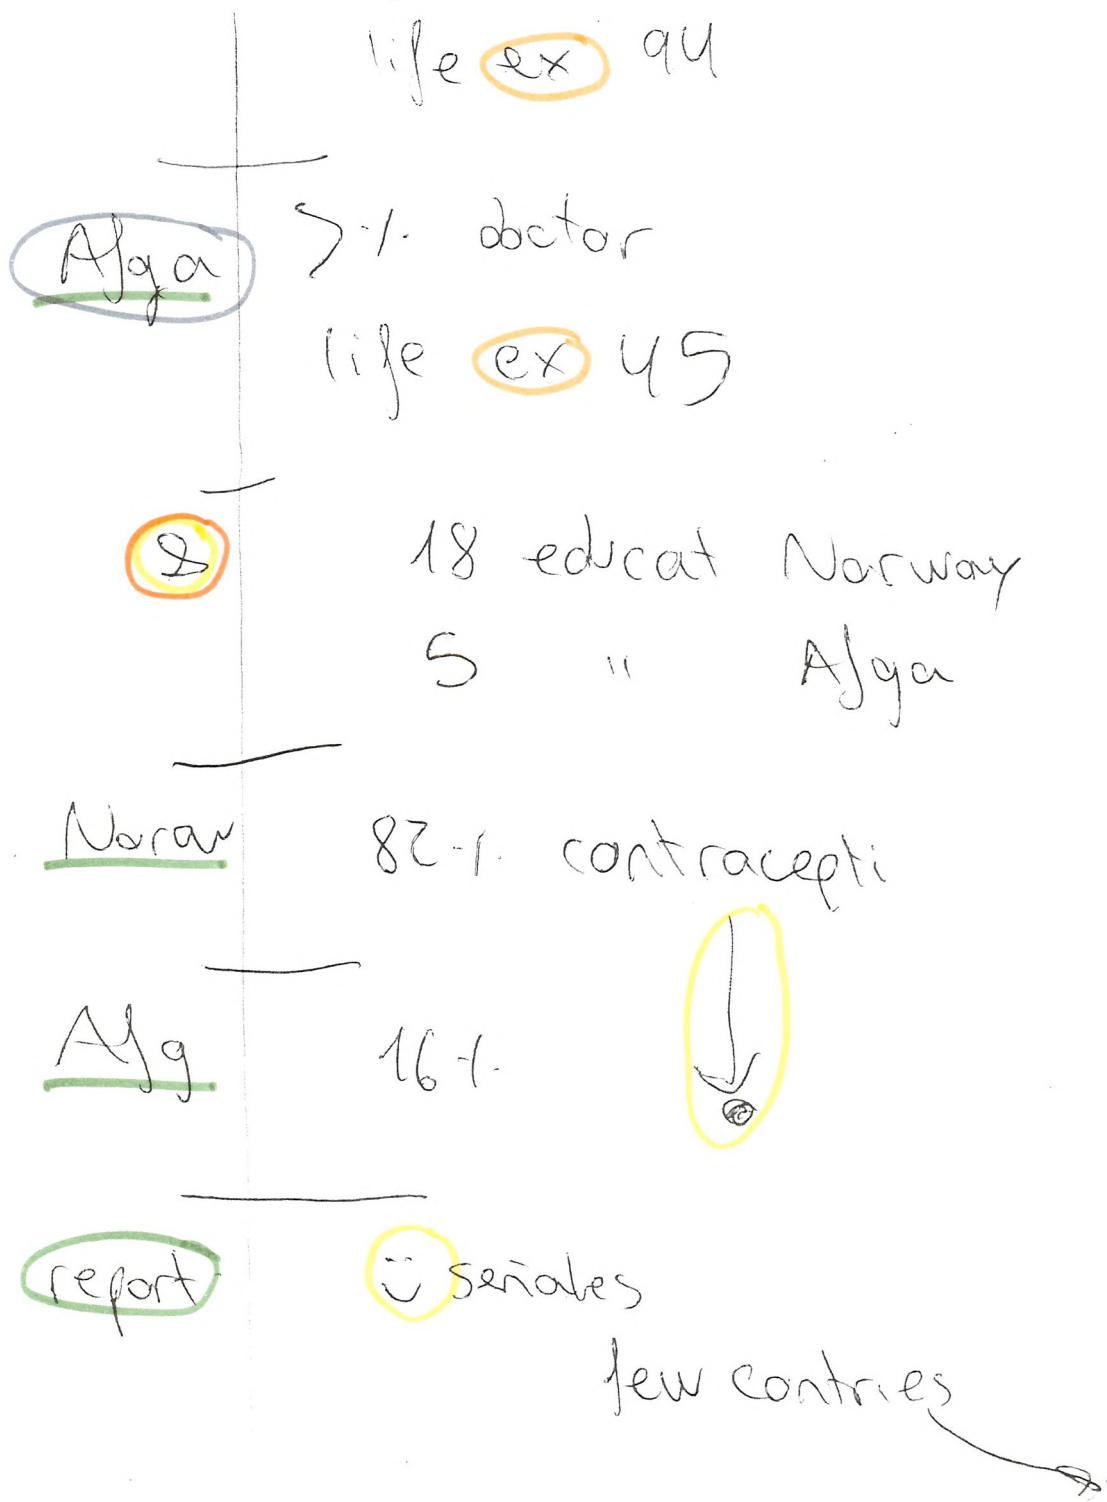 life ex 94
Afga 7% doctor
life ex 45
18 educat Norway
5 " Afga
Noraw 82% contracepti
Afg 16%
report señales
few contries